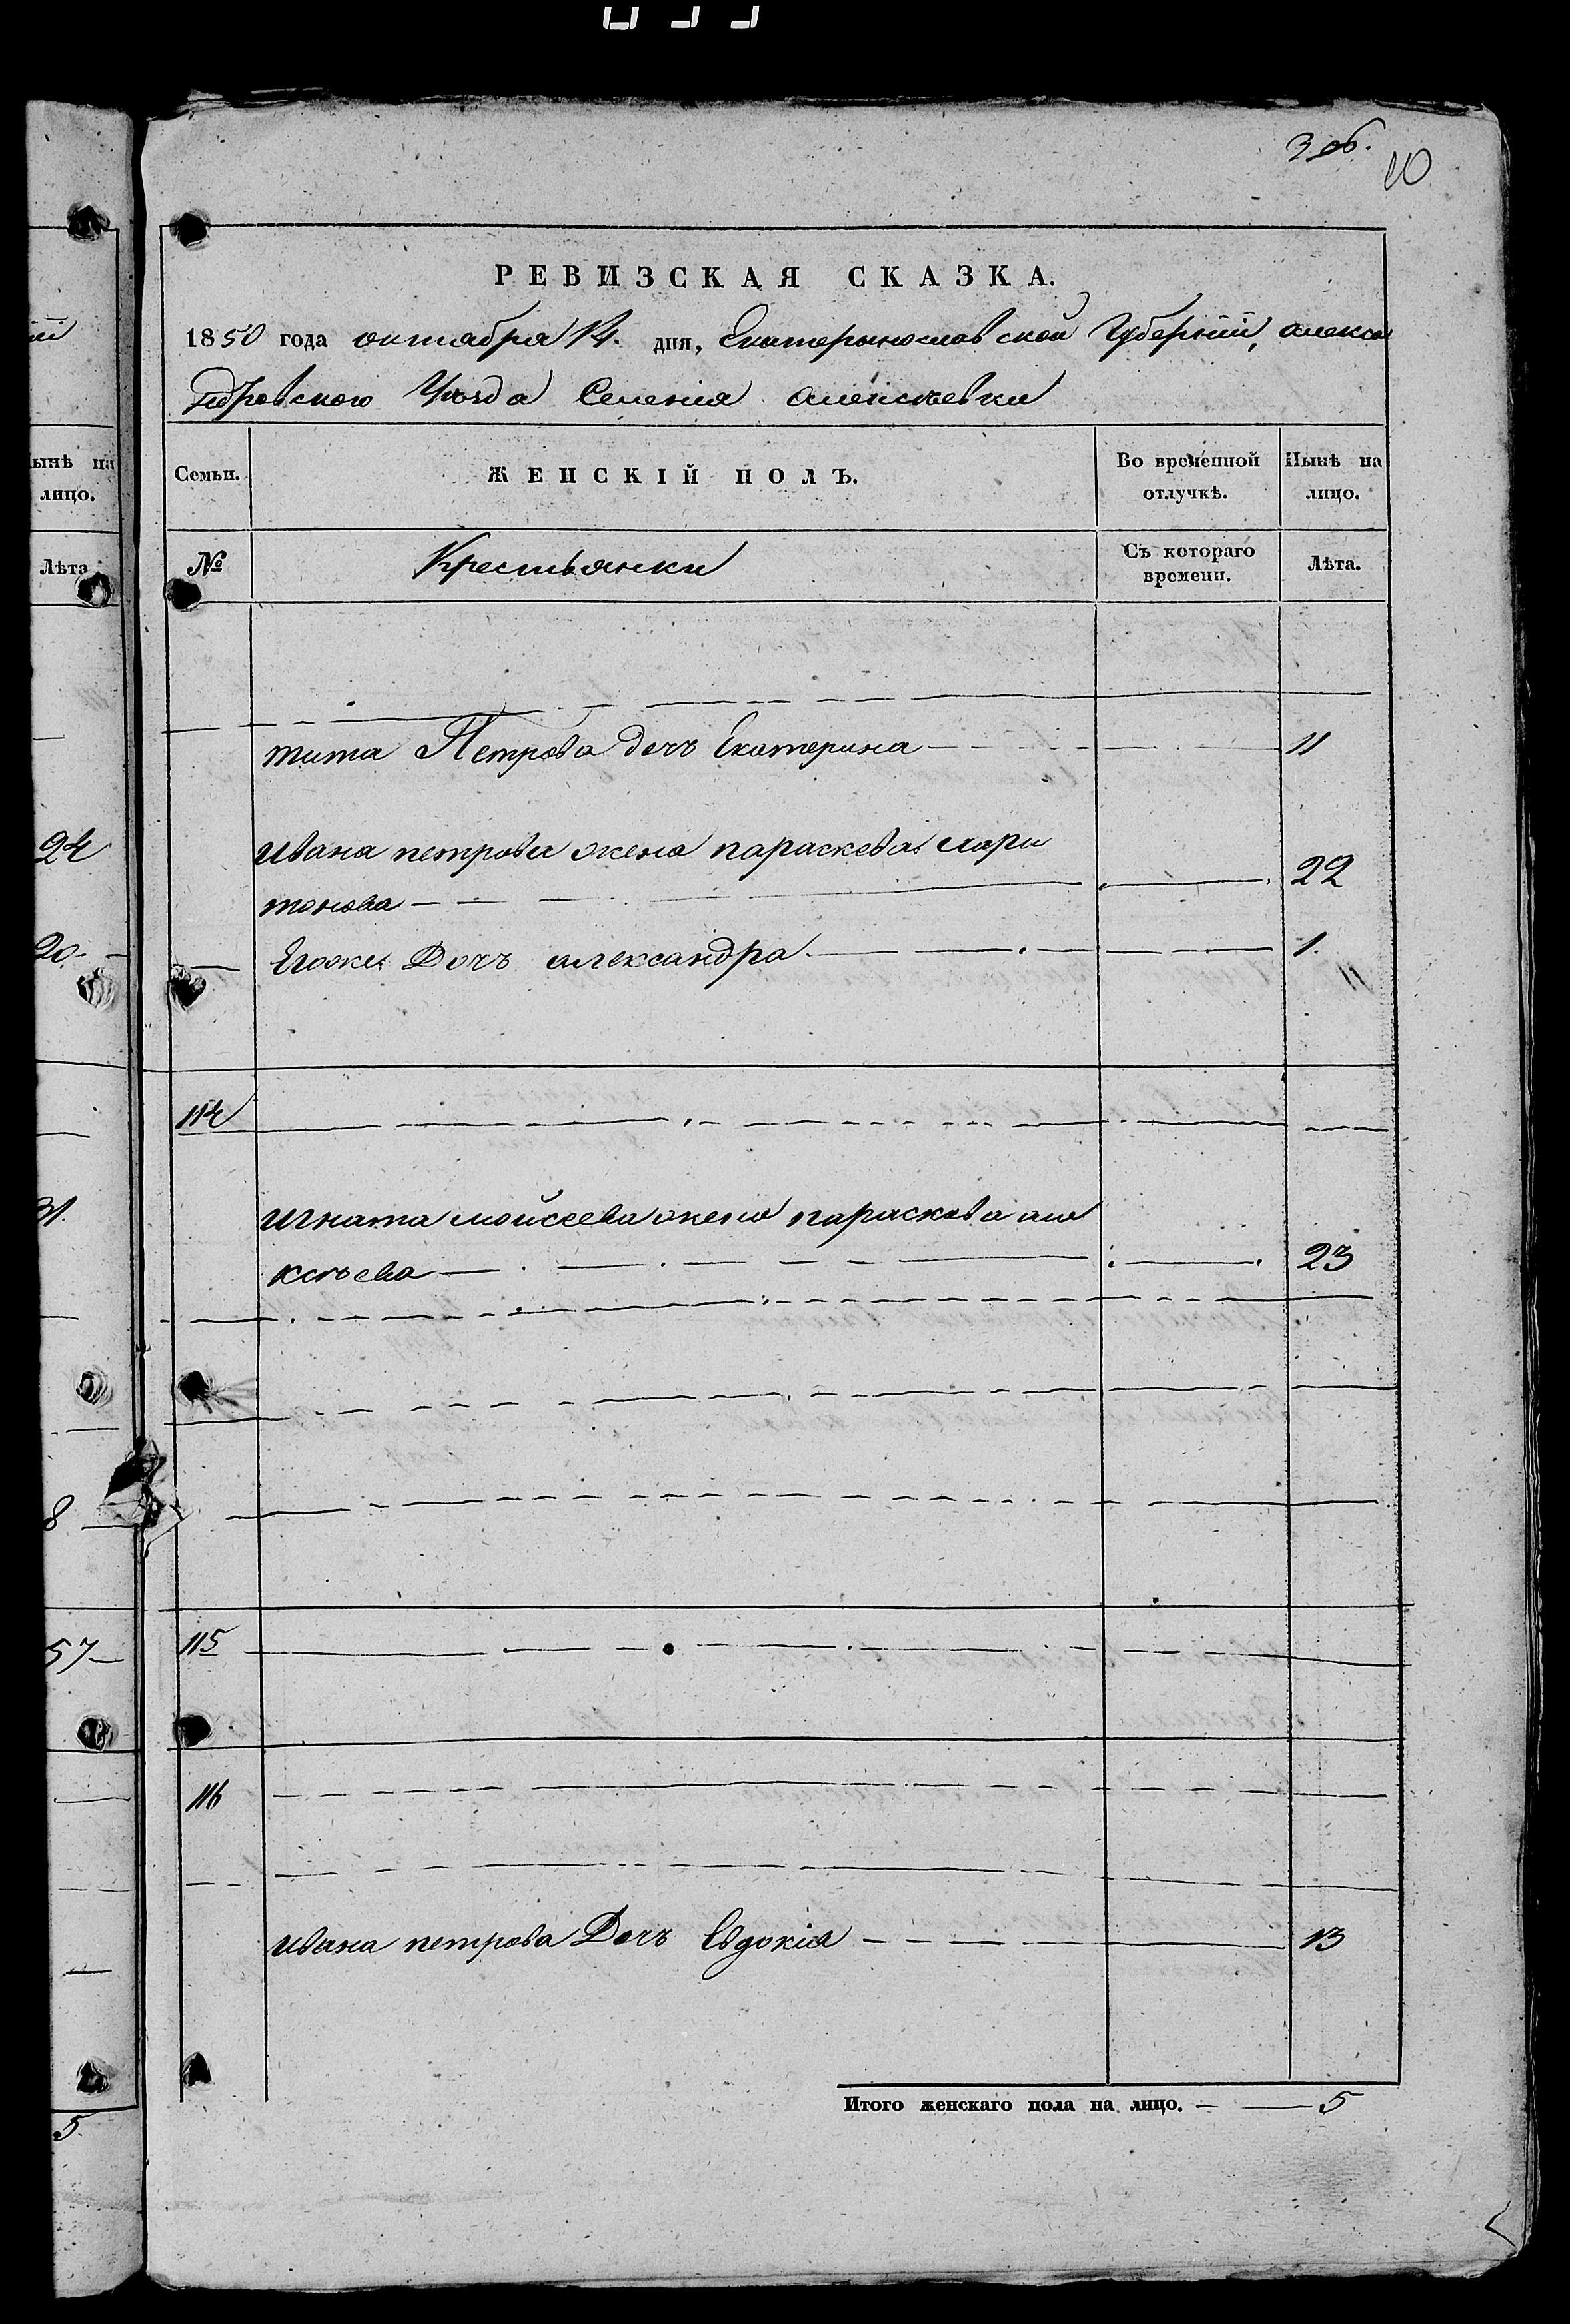 3 об.
10
РЕВИЗСКАЯ СКАЗКА.
1850 года октабра 14. дня, Екатериославской Губерніи, алекса
ндровского Уѣзда Селенія алексѣевки
Семьи.
ЖЕНСКІЙ ПОЛЪ.
Во временной отлучкѣ.
Нынѣ на лицо.
№
Крестьянки
Съ котораго времени.
Лѣта.
тита Петрова дочъ Екатерина 11
Ивана петрова жена параскева хари
тонова 22
Егоже Дочъ александра 1.
114
Игната мойсеева жена параскева але
ксѣева 23
115
116
Ивана петрова Дочъ Евдокія 13
Итого женскаго пола на лицо. 5
ынѣ на
лицо.
Лѣта
24
20
31.
8
57
5